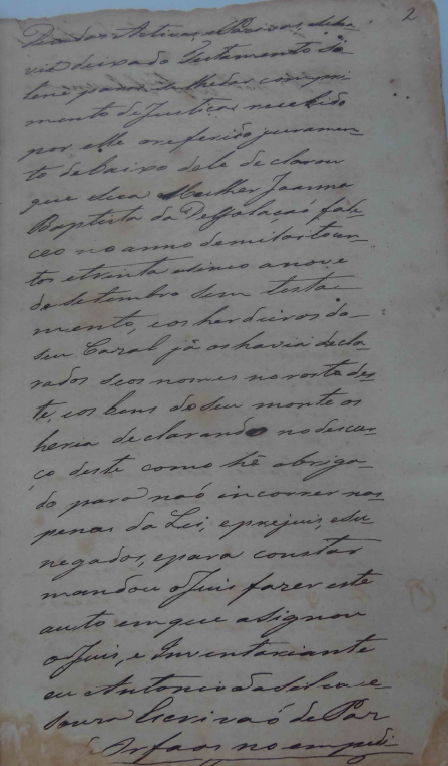 2
Dividas Activas, e Passivas, e se ha-
via deixado Testamento So-
lene para se lhe dar compri
mento de Justiça, e recebido
por elle o referido juramen-
to debaixo dele declarou
que dica Mulher Joanna
Baptista da Dessolaçaõ fale-
ceo no anno de mil oitocen-
tos e trinta e sinco a nove
de setembro sem testa-
mento, e os herdeiros do
seu Cazal já os havia decla-
rados seos nomes no rosto des-
te, e os bens do seu monte os
heria declarando no descur-
ço deste como hê obriga-
do para naõ incorrer nas
penas da Lei, e prejuis, e su-
negados, e para constar
mandou o Juis fazer este
auto em que asignou
o Juis, e Inventariante
eu Antonio da Silva e
Souza Escrivaõ de Paz
Orfaos no empedi-